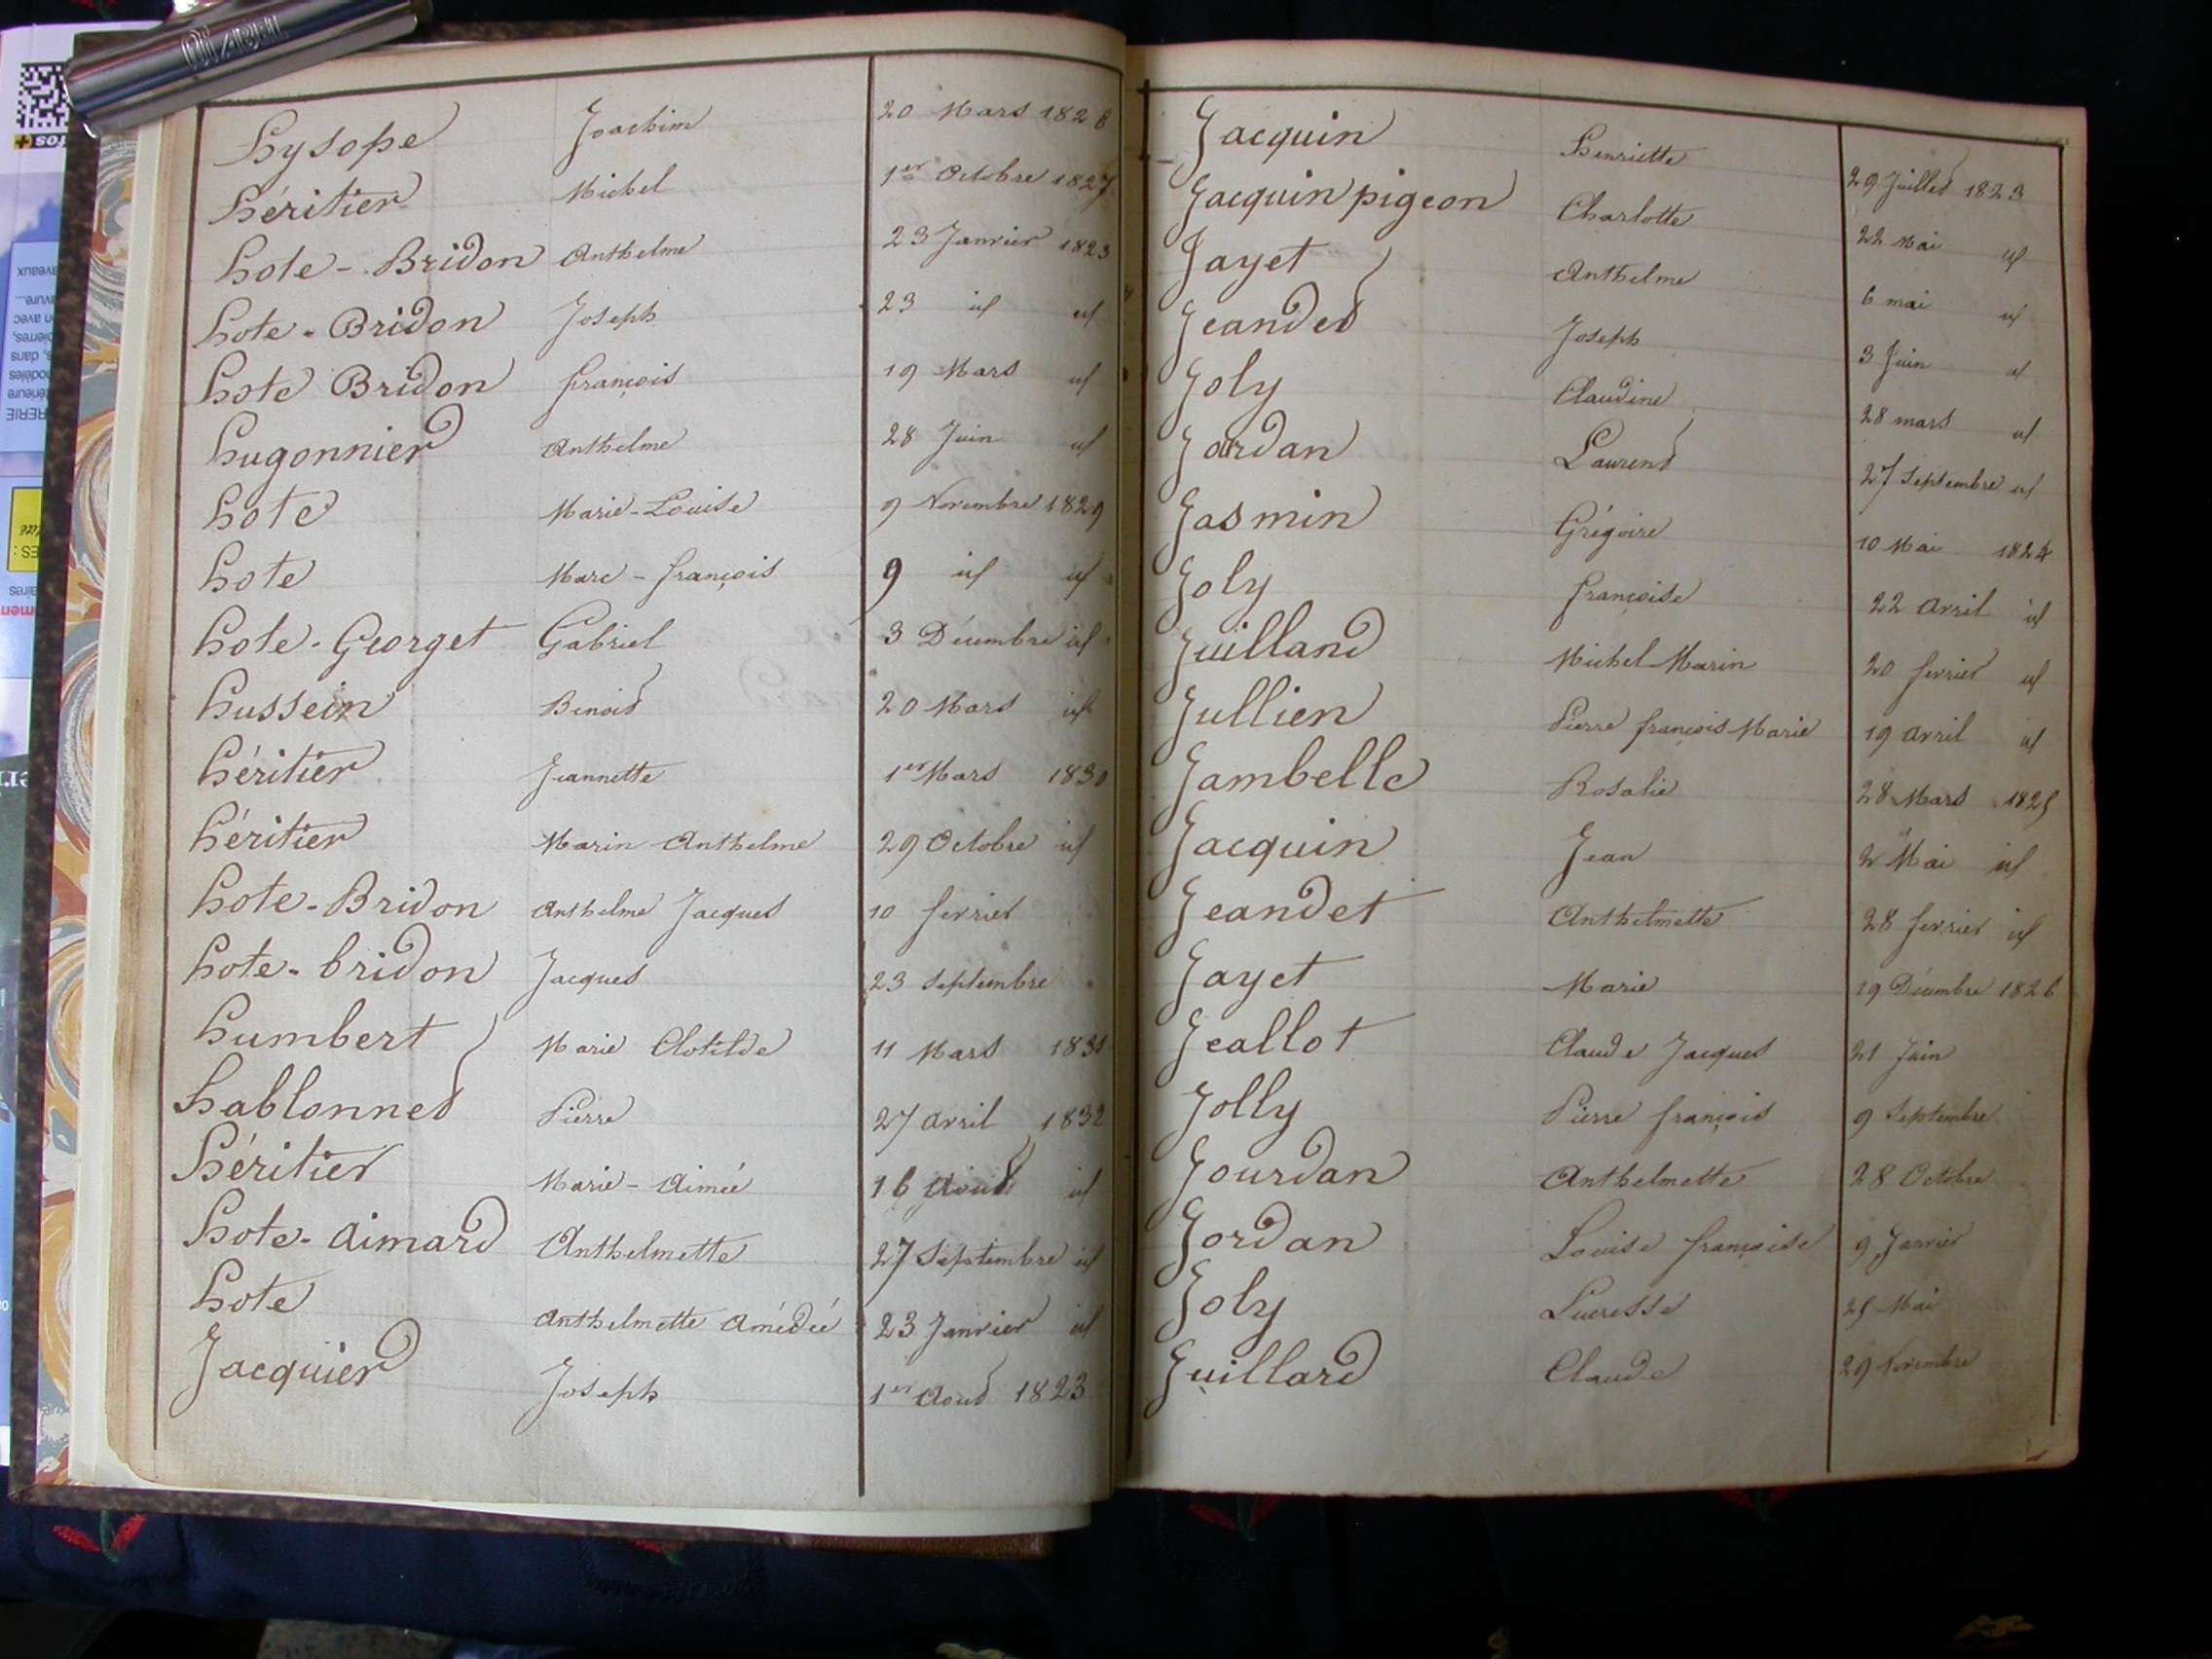 DIABEL
Hysope Joachim 20 Mars 1828
héritier Michel 1er Octobre 1827
hote - Bridon Anthelme 23 Janvier 1823
hote - Bridon Joseph 23 id id
hote Bridon françois 19 Mars id
hugonnier Anthelme 28 Juin id
hote Marie - Louise 9 Novembre 1829
hote Marc - françois 9 id id
hote - Georget Gabriel 3 Décembre id
hussein Benoit 20 Mars id
héritier Jeannette 1er Mars 1830
héritier Marin Anthelme 29 Octobre id
hote - Bridon Anthelme Jacques 10 fevrier
hote - bridon Jacques 23 Septembre
humbert Marie Clotilde 11 Mars 1831
Hablonnet Pierre 27 avril 1832
Héritier Marie - Aimée 16 Aout id
hote - aimard Anthelmette 27 Septembre id
hote Anthelmette Amédée 23 Janvier id
Jacquier Joseph 1er Aout 1823
Jacquin Henriette 29 Juillet 1823
Jacquin pigeon Charlotte 22 Mai id
Jayet Anthelme 6 mai id
Jeandet Joseph 3 Juin id
Joly Claudine 28 mars id
Jordan Laurent 27 Septembre id
Jasmin Grégoire 10 Mai 1824
Joly françoise 22 avril id
Juilland Michel Marin 20 fevrier id
Jullien Pierre françois Marie 19 avril id
Jambelle Rosalie 28 Mars 1825
Jacquin Jean 2 Mai id
Jeandet Anthelmette 28 fevrier id
Jayet Marie 19 Décembre 1826
Jeallot Claude Jacques 21 Juin
Jolly Pierre françois 9 Septembre
Jourdan Anthelmette 28 Octobre
Jordan Louise françoise 9 Janvier
Joly Lucresse 25 Mai
Juillard Claude 29 Novembre